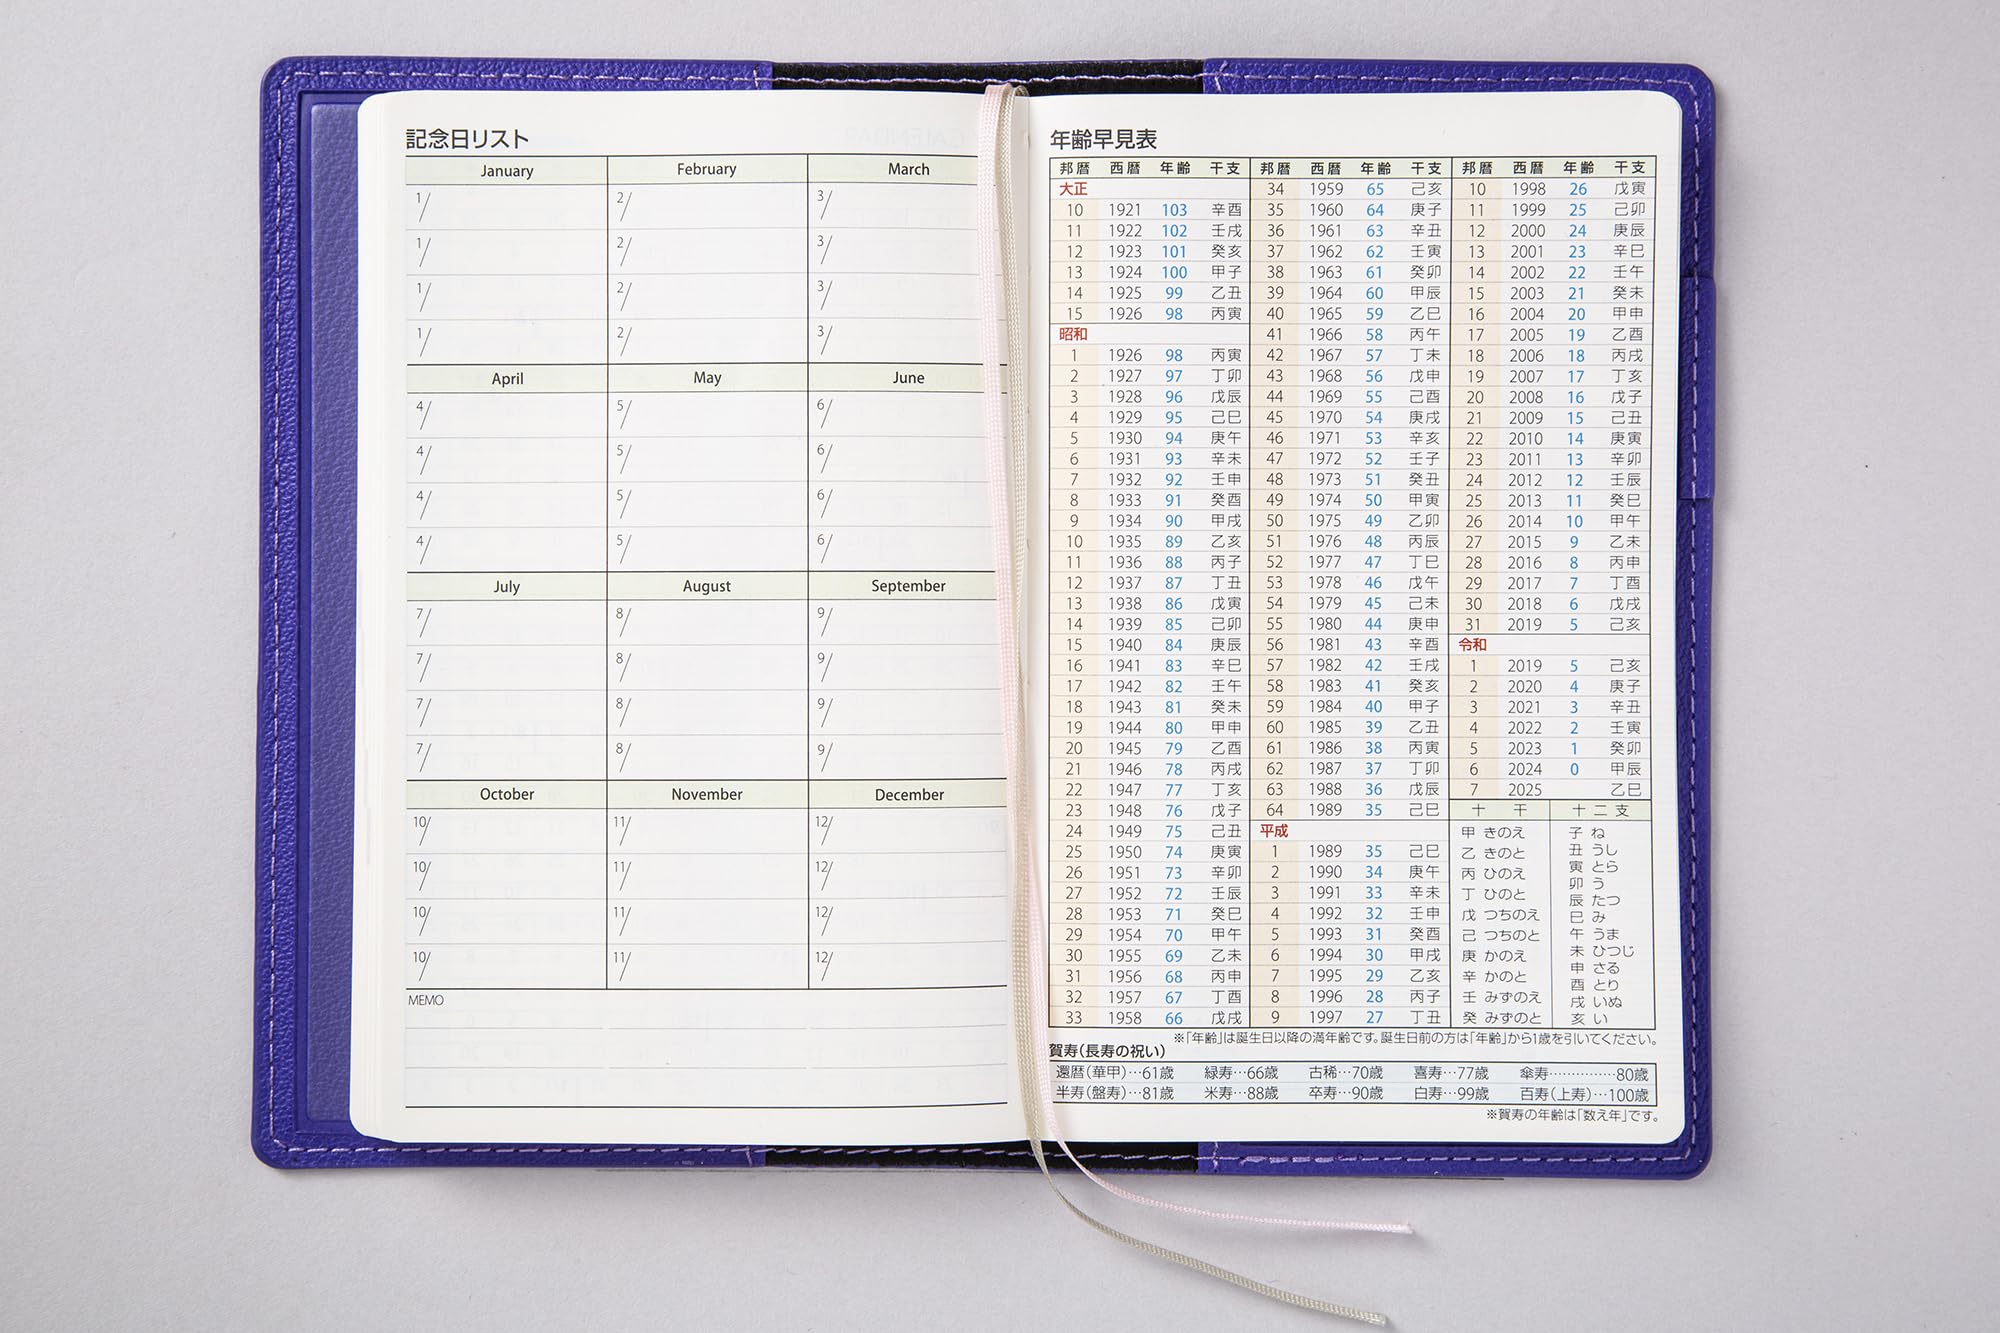 記念日リスト
January February March
1/ 2/ 3/
1/ 2/ 3/
1/ 2/ 3/
1/ 2/ 3/
April May June
4/ 5/ 6/
4/ 5/ 6/
4/ 5/ 6/
4/ 5/ 6/
July August September
7/ 8/ 9/
7/ 8/ 9/
7/ 8/ 9/
7/ 8/ 9/
October November December
10/ 11/ 12/
10/ 11/ 12/
10/ 11/ 12/
10/ 11/ 12/
MEMO
年齢早見表
邦暦 西暦 年齢 干支
大正
10 1921 103 辛酉
11 1922 102 壬戌
12 1923 101 癸亥
13 1924 100 甲子
14 1925 99 乙丑
15 1926 98 丙寅
昭和
1 1926 98 丙寅
2 1927 97 丁卯
3 1928 96 戊辰
4 1929 95 己巳
5 1930 94 庚午
6 1931 93 辛未
7 1932 92 壬申
8 1933 91 癸酉
9 1934 90 甲戌
10 1935 89 乙亥
11 1936 88 丙子
12 1937 87 丁丑
13 1938 86 戊寅
14 1939 85 己卯
15 1940 84 庚辰
16 1941 83 辛巳
17 1942 82 壬午
18 1943 81 癸未
19 1944 80 甲申
20 1945 79 乙酉
21 1946 78 丙戌
22 1947 77 丁亥
23 1948 76 戊子
24 1949 75 己丑
25 1950 74 庚寅
26 1951 73 辛卯
27 1952 72 壬辰
28 1953 71 癸巳
29 1954 70 甲午
30 1955 69 乙未
31 1956 68 丙申
32 1957 67 丁酉
33 1958 66 戊戌
邦暦 西暦 年齢 干支
34 1959 65 己亥
35 1960 64 庚子
36 1961 63 辛丑
37 1962 62 壬寅
38 1963 61 癸卯
39 1964 60 甲辰
40 1965 59 乙巳
41 1966 58 丙午
42 1967 57 丁未
43 1968 56 戊申
44 1969 55 己酉
45 1970 54 庚戌
46 1971 53 辛亥
47 1972 52 壬子
48 1973 51 癸丑
49 1974 50 甲寅
50 1975 49 乙卯
51 1976 48 丙辰
52 1977 47 丁巳
53 1978 46 戊午
54 1979 45 己未
55 1980 44 庚申
56 1981 43 辛酉
57 1982 42 壬戌
58 1983 41 癸亥
59 1984 40 甲子
60 1985 39 乙丑
61 1986 38 丙寅
62 1987 37 丁卯
63 1988 36 戊辰
64 1989 35 己巳
平成
1 1989 35 己巳
2 1990 34 庚午
3 1991 33 辛未
4 1992 32 壬申
5 1993 31 癸酉
6 1994 30 甲戌
7 1995 29 乙亥
8 1996 28 丙子
9 1997 27 丁丑
邦暦 西暦 年齢 干支
10 1998 26 戊寅
11 1999 25 己卯
12 2000 24 庚辰
13 2001 23 辛巳
14 2002 22 壬午
15 2003 21 癸未
16 2004 20 甲申
17 2005 19 乙酉
18 2006 18 丙戌
19 2007 17 丁亥
20 2008 16 戊子
21 2009 15 己丑
22 2010 14 庚寅
23 2011 13 辛卯
24 2012 12 壬辰
25 2013 11 癸巳
26 2014 10 甲午
27 2015 9 乙未
28 2016 8 丙申
29 2017 7 丁酉
30 2018 6 戊戌
31 2019 5 己亥
令和
1 2019 5 己亥
2 2020 4 庚子
3 2021 3 辛丑
4 2022 2 壬寅
5 2023 1 癸卯
6 2024 0 甲辰
7 2025 乙巳
十干
甲 きのえ
乙 きのと
丙 ひのえ
丁 ひのと
戊 つちのえ
己 つちのと
庚 かのえ
辛 かのと
壬 みずのえ
癸 みずのと
十二支
子 ね
丑 うし
寅 とら
卯 う
辰 たつ
巳 み
午 うま
未 ひつじ
申 さる
酉 とり
戌 いぬ
亥 い
※「年齢」は誕生日以降の満年齢です。誕生日前の方は「年齢」から1歳を引いてください。
賀寿(長寿の祝い)
還暦(華甲)…61歳 緑寿…66歳 古稀…70歳 喜寿…77歳 傘寿……………80歳
半寿(盤寿)…81歳 米寿…88歳 卒寿…90歳 白寿…99歳 百寿(上寿)…100歳
※賀寿の年齢は「数え年」です。